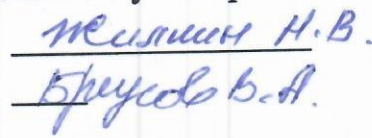 Жиллин Н.В.
Брусов В.А.